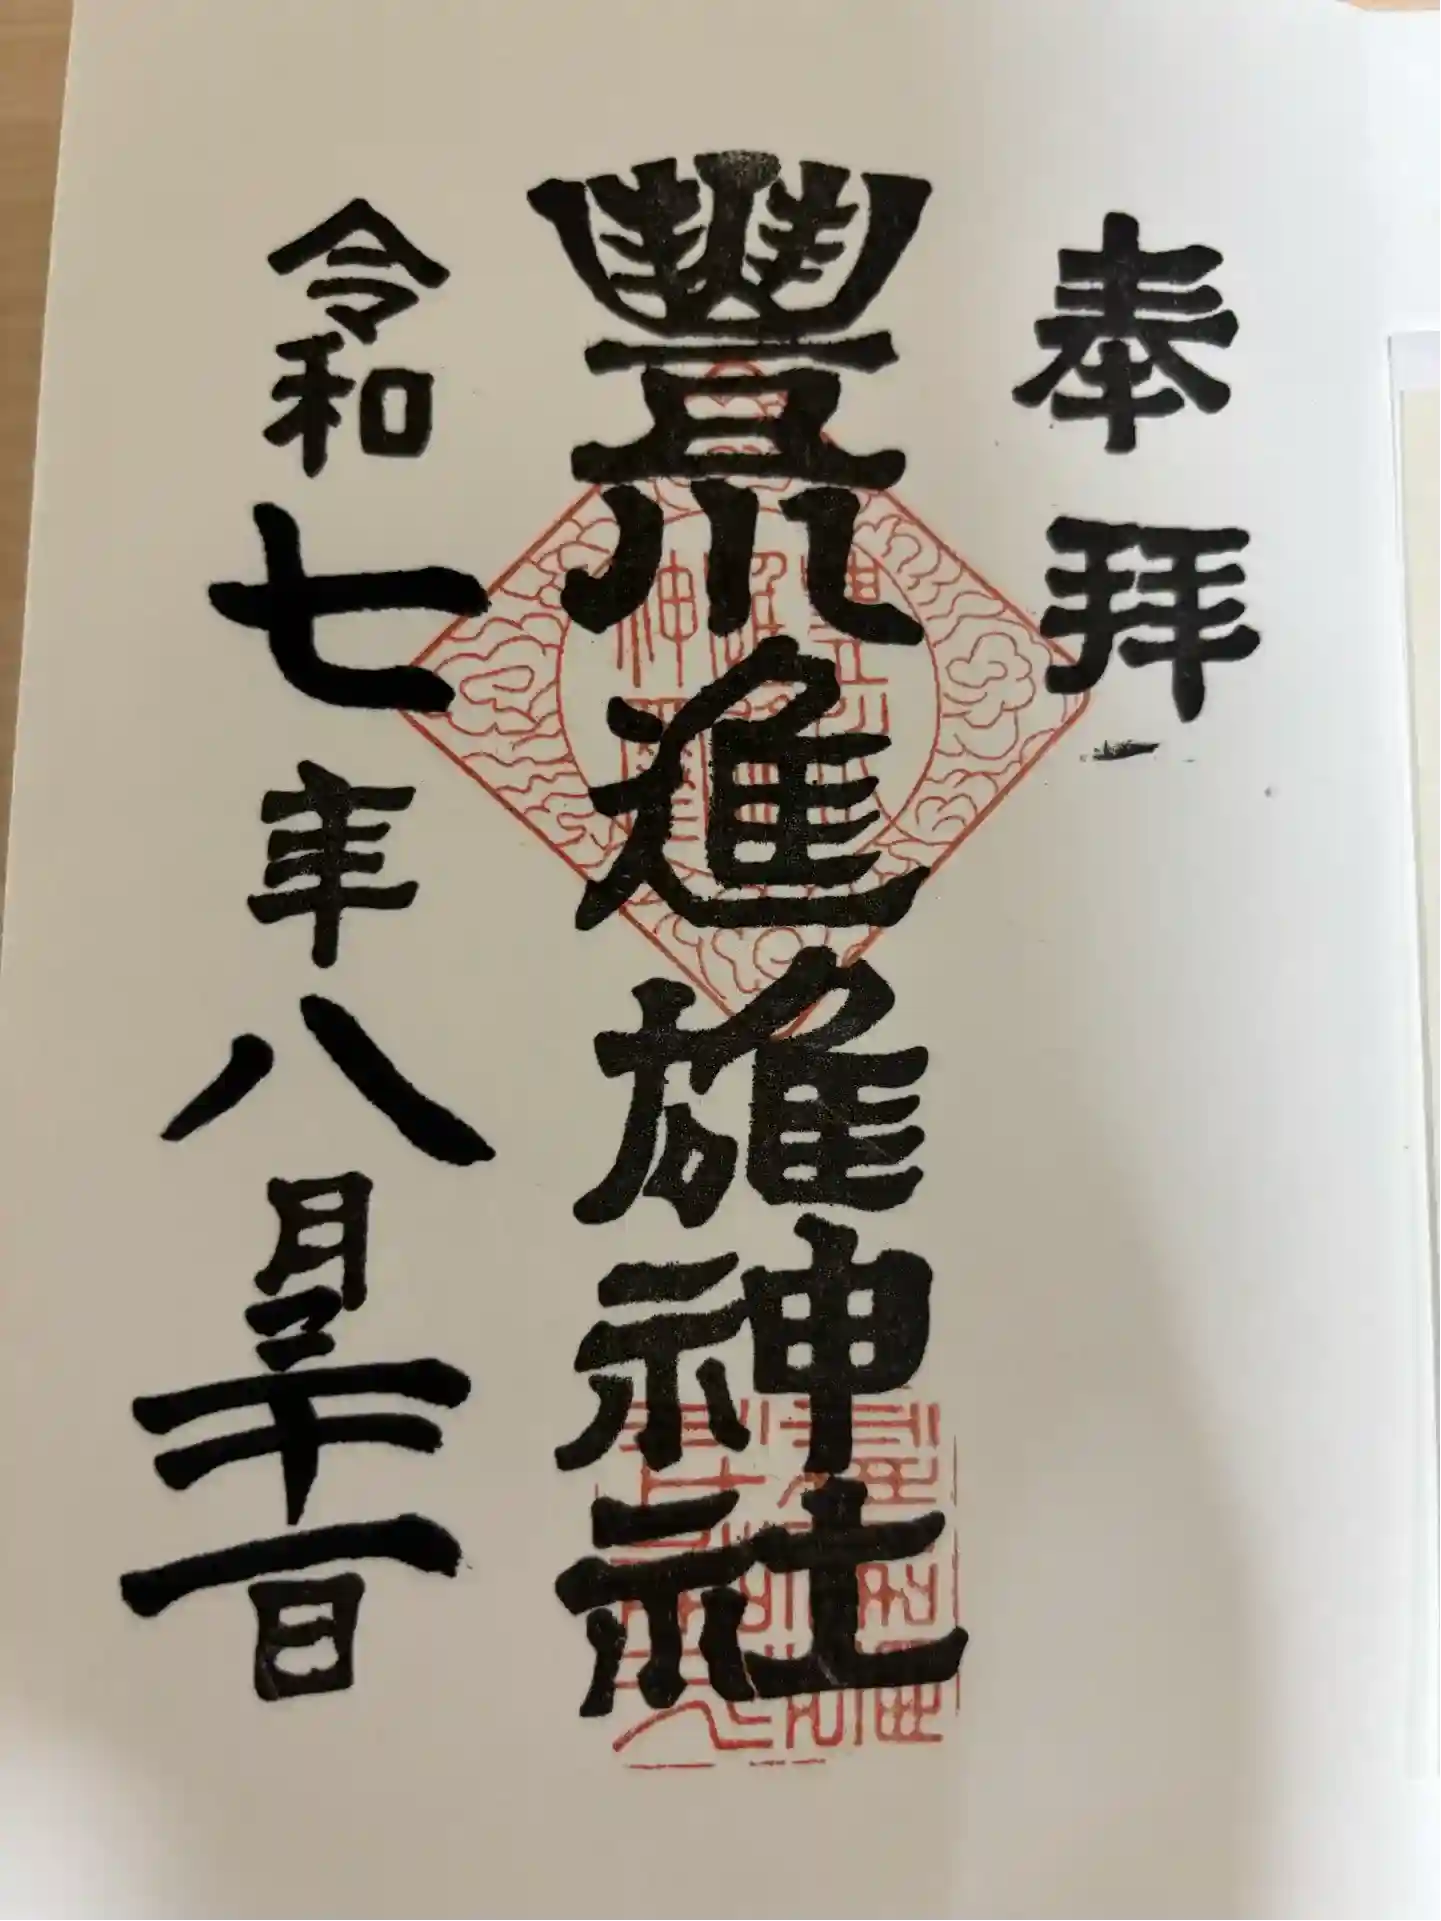 奉拝
豐川進雄神社
令和七年八月三十一日